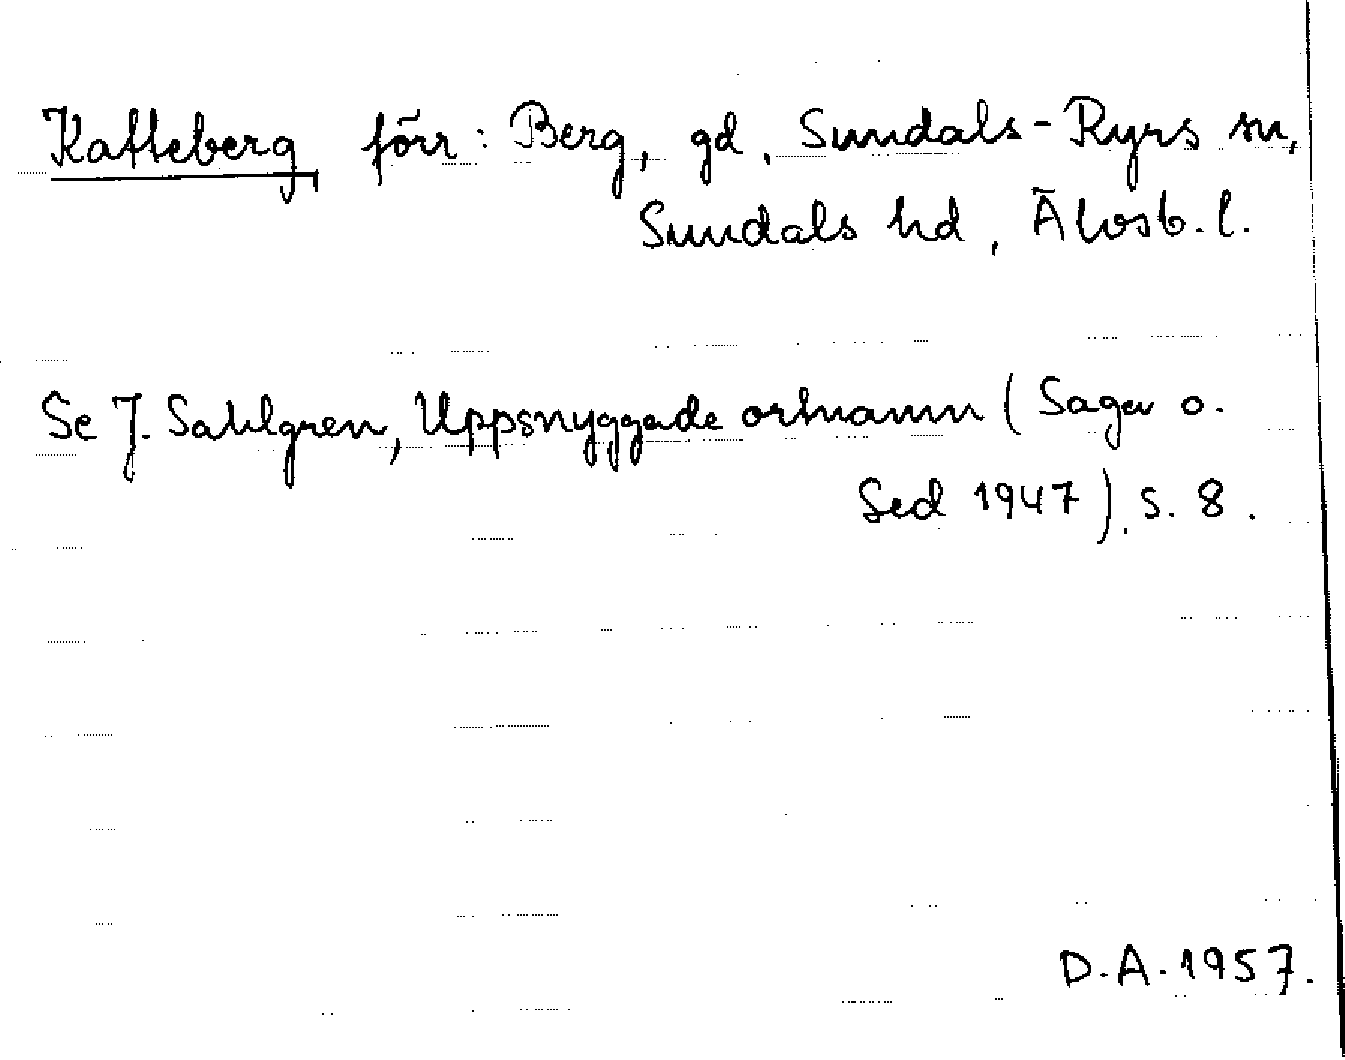 Katteberg förr: Berg, gd, Sundals-Ryrs sn,
Sundals hd, Älvsb. l.
Se J. Sahlgren, Uppsnyggade ortnamn (Saga o.
Sed 1947), s. 8.
D.A. 1957.